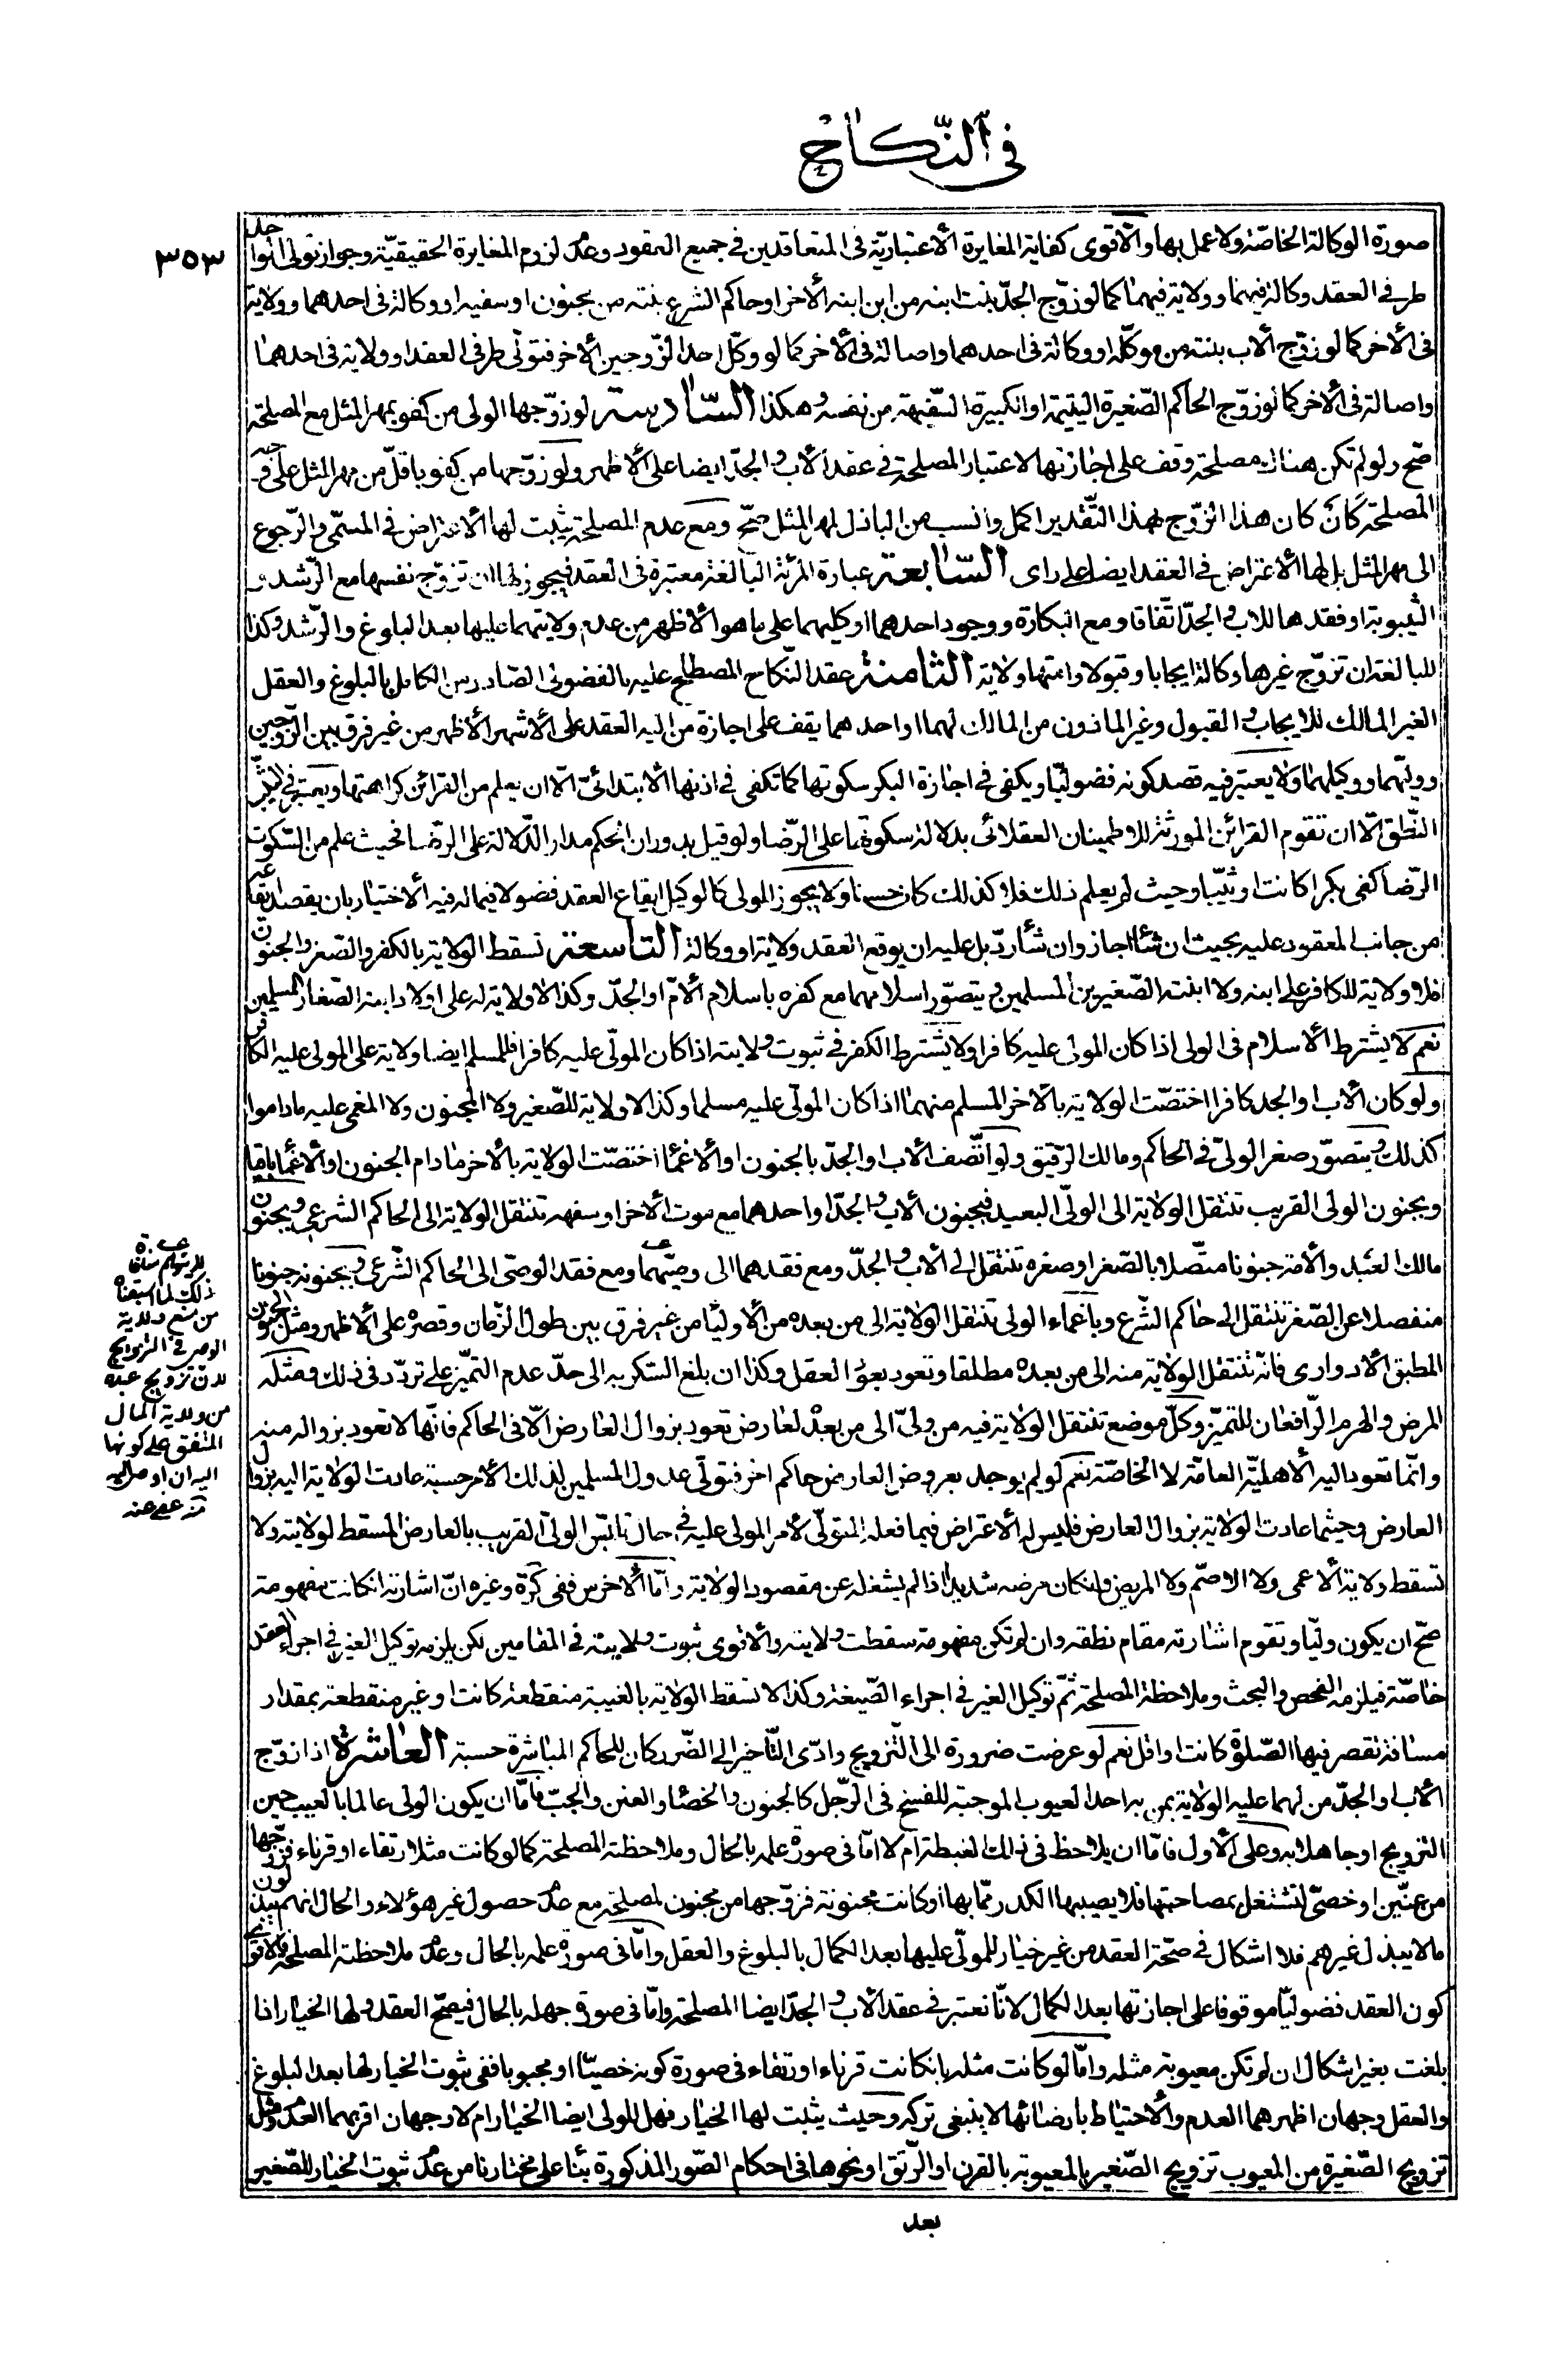 في النكاح
٣٥٣
صورة الوكالة الخاصّة ولا عمل بها والأقوى كفاية المغايرة الأعتباريّة في المتعاقدين في جميع العقود وعدم لزوم المغايرة الحقيقيّة وجواز تولى الواحد
طرفي العقد وكالة فيهما وولاية فيهما كما لو زوّج الجدّ بنت ابنه من ابن ابنه الأخر او حاكم الشرع بنته من مجنون او سفيه او وكالة في احدهما وولاية
في الأخر كما لو زوّج الأب بنته من موكّله او وكالة في احدهما واصالة في الأخر كما لو وكّل احد الزّوجين الأخر فتولّى طرفي العقد او ولاية في احدهما
واصالة في الأخر كما لو زوّج الحاكم الصّغيرة اليتيمة او الكبيرة السّفيهة من نفسه وهكذا السّادسة لو زوّجها الولى من كفو بمهر المثل مع المصلحة
صّح ولو لم تكن هناك مصلحة وقف على اجازتها لاعتبار المصلحة في عقد الأب والجدّ ايضا على الأظهر ولو زوّجها من كفو باقلّ من مهر المثل على وجه
المصلحة كان كان هذا الزّوج بهذا التّقدير اكمل وانسب من الباذل لمهر المثل صّح ومع عدم المصلحة يثبت لها الأعتراض في المسمّى والرّجوع
الى مهر المثل بل لها الأعتراض في العقد ايضا على راى السّابعة عبارة المرئة البالغة معتبرة في العقد فيجوز لها ان تزوّج نفسها مع الرّشد و
الثيبوبة او فقدها للاب والجدّ اتّفاقا ومع البكارة ووجود احدهما او كليهما على ما هو الأظهر من عدم ولايتهما عليها بعد البلوغ والرّشد وكذا
للبالغة ان تزوّج غيرها وكالة ايجابا وقبولا وامتها ولاية الثامنة عقد النّكاح المصطلح عليه بالفضولى الصّادر من الكامل بالبلوغ والعقل
الغير المالك للايجاب والقبول وغير الماذون من المالك لهما او احدهما يقف على اجازة من اليه العقد على الأشهر الأظهر من غير فرق بين الزّوجين
ووليّهما ووكيلهما ولا يعتبر فيه قصد كونه فضوليّا ويكفى في اجازة البكر سكوتها كما تكفى في اذنها الأبتدائىّ الّا ان يعلم من القرائن كراهتها ويعتبر في الثيّب
النّطق الّا ان تقوم القرائن المورثة للاطمينان العقلائى بدلالة سكوتها على الرّضا ولو قيل بدوران الحكم مدار الدّلالة على الرّضا فحيث علم من السّكوت
الرّضا كفى بكرا كانت او ثيّبا وحيث لم يعلم ذلك فلا كذلك كان حسنا ولا يجوز للولى كالوكيل ايقاع العقد فضولا فيما له فيه الأختيار بان يقصد ايقاعه
من جانب المعقود عليه بحيث ان شاء اجاز وان شاء ردّ بل عليه ان يوقع العقد ولاية او وكالة التاسعة تسقط الولاية بالكفر والصّغر والجنون
فلا ولاية للكافر على ابنه ولا ابنته الصّغيرين المسلمين ويتصوّر اسلامهما مع كفره باسلام الأمّ او الجدّ وكذا لا ولاية له على اولاد ابنه الصّغار المسلمين
نعم لا يشترط الأسلام في الولى اذا كان المولى عليه كافرا ولا يشترط الكفر في ثبوت ولايته اذا كان المولّى عليه كافرا فللمسلم ايضا ولاية على المولى عليه الكافر
ولو كان الأب او الجد كافرا اختصّت الولاية بالأخر المسلم منهما اذا كان المولّى عليه مسلما وكذا لا ولاية للصّغير ولا المجنون ولا المغمى عليه ماداموا
كذلك ويتصوّر صغر الولىّ في الحاكم ومالك الرّقيق ولو اتّصف الأب او الجدّ بالجنون او الأغماء اختصّت الولاية بالأخر مادام الجنون او الأغماء باقيا
وبجنون الولى القريب تنتقل الولاية الى الولىّ البعيد فبجنون الأب والجدّ او احدهما مع موت الأخر او سفهه تنتقل الولاية الى الحاكم الشرعي وبجنون
مالك العبد والأمة جنونا متّصلا بالصّغر او صغره تنتقل الى الأب والجدّ ومع فقدهما الى وصيّهما ومع فقد الوصّى الى الحاكم الشّرعي وبجنونه جنونا
منفصلا عن الصّغر تنتقل الى حاكم الشّرع وباغماء الولى تنتقل الولاية الى من بعده من الأولياء من غير فرق بين طول الزّمان وقصره على الأظهر ومثل الجنون
المطبق الأدوارى فانّه تنتقل الولاية منه الى من بعده مطلقا وتعود بعود العقل وكذا ان بلغ السّكر به الى حدّ عدم التميّز على تردّد في ذلك ومثله
المرض والهرم الرّافعان للتميّز وكلّ موضع تنتقل الولاية فيه من ولىّ الى من بعده لعارض تعود بزوال العارض الّا في الحاكم فانّها لا تعود بزواله منه
وانّما تعود اليه الأهليّة العامّة لا الخاصّة نعم لو لم يوجد بعروض العارض حاكم اخر فتولّى عدول المسلمين لذلك الأمر حسبة عادت الولاية اليه بزوال
العارض وحيثما عادت الولاية بزوال العارض فليس له الأعتراض فيما فعله المتولّى لأمر المولى عليه في حال تلبّس الولىّ القريب بالعارض المسقط لولايته ولا
تسقط ولاية الأعمى ولا الاصّم ولا المريض وان كان مرضه شديدا اذا لم يشغله عن مقصود الولاية وامّا الأخرس ففى كرّة وغيره انّ اشارته ان كانت مفهومة
صّح ان يكون وليّا وتقوم اشارته مقام نطقه وان لم تكن مفهومة سقطت ولايته والأقوى ثبوت ولايته في المقامين لكن يلزمه توكيل الغير في اجراء العقد
خاصّة فيلزمه الفحص والبحث وملاحظة المصلحة ثمّ توكيل الغير في اجراء الصّيغة وكذا لا تسقط الولاية بالغيبة منقطعة كانت او غير منقطعة بمقدار
مسافة تقصر فيها الصّلوة كانت او اقل نعم لو عرضت ضرورة الى التّزويج وادّى التّأخير الى الضّرر كان للحاكم المباشرة حسبة العاشرة اذا زوّج
الأب او الجدّ من لهما عليه الولاية بمن به احد العيوب الموجبة للفسخ في الرّجل كالجنون والخصاء والعنن والجبّ فامّا ان يكون الولى عالما بالعيب حين
التزويج او جاهلا به وعلى الأول فامّا ان يلاحظ في ذلك الغبطة ام لا امّا في صورة علمه بالحال وملاحظة المصلحة كما لو كانت مثلا رتقاء او قرناء فزوّجها
من عنّين او خصىّ لتشتغل بمصاحبتها فلا يصيبها الكدر ممّا بها او كانت مجنونة فزوّجها من مجنون لمصلحة مع عدم حصول غير هؤلاء والحال انهم يبذلون
ما لا يبذل غيرهم فلا اشكال في صحّة العقد من غير خيار للمولّى عليها بعد الكمال بالبلوغ والعقل وامّا في صورة علمه بالحال وعدم ملاحظة المصلحة فالأقوى
كون العقد فضوليّا موقوفا على اجازتها بعد الكمال لانّا نعتبر في عقد الأب والجدّ ايضا المصلحة وامّا في صورة جهله بالحال فيصّح العقد ولها الخيار اذا
بلغت بغير اشكال ان لم تكن معيوبة مثله وامّا لو كانت مثله بان كانت قرناء او رتقاء في صورة كونه خصيّا او مجبوبا ففى ثبوت الخيار لها بعد البلوغ
والعقل وجهان اظهرهما العدم والأحتياط بارضائها لا ينبغى تركه وحيث يثبت لها الخيار فهل للولى ايضا الخيار ام لا وجهان اقربهما العدم ومثل
تزويج الصّغيرة من المعيوب تزويج الصّغير بالمعيوبة بالقرن او الرّتق او نحوها في احكام الصّور المذكورة بناء على مختارنا من عدم ثبوت الخيار للصّغير
ذلك لما اسبقناه
من منع ولاية
الوصى في التزويج
لان تزويج عبده
من ولاية المال
المتفق على كونها
منه عفى عنه
بعد